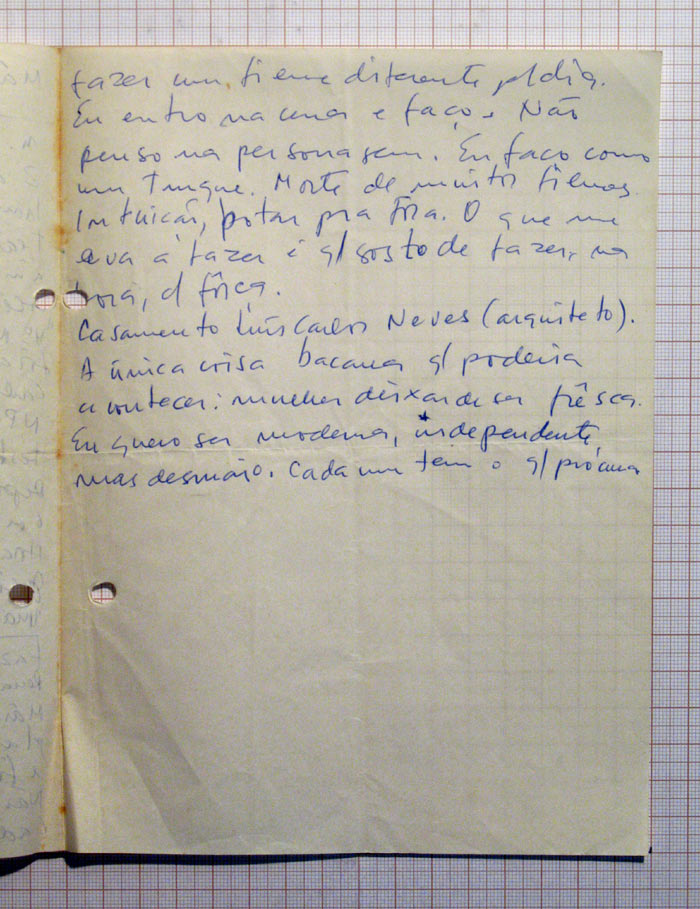 fazer um filme diferente p/dia.
Eu entro na cena e faço. Não
penso na personagem. Eu faço como
um truque. Morte de muitos filmes.
Intuição, botar pra fora. O que me
leva à fazer é q/gosto de fazer, na
hora, c/ fôrça.
Casamento Luis Carlos Neves (arquiteto).
A única coisa bacana q/poderia
acontecer: mulher deixar de ser fresca.
Eu quero ser moderna, independente,
mas desmaio. Cada um tem o q/procura